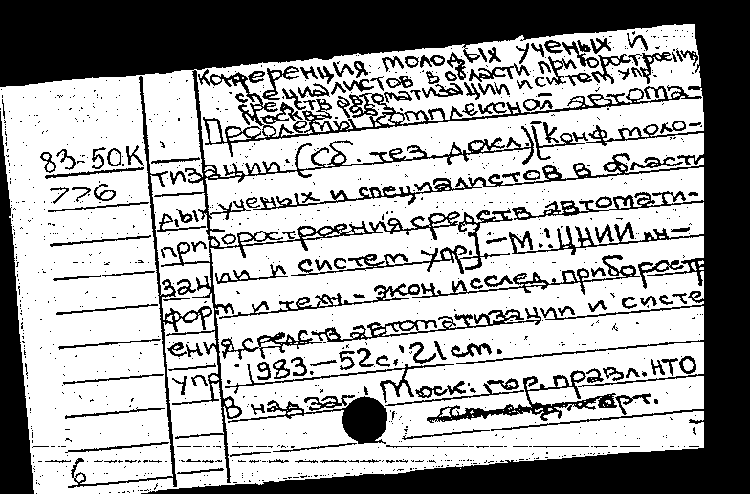 Конференция молодых ученых и
специалистов в области приборостроения,
средств автоматизации и систем упр.
Москва. 1982
Проблемы комплексной автома-
83-50К
776
тизации. (Сб. тез. докл.) [Конф. моло-
дых ученых и специалистов в области
приборостроения, средств автомати-
зации и систем упр.]. - М.: ЦНИИ ин-
форм. и техн.-экон. исслед. приборостр
ения, средств автоматизации и систе
упр., 1983. - 52 с.; 21 см.
В надзаг.: Моск. гор. правл. НТО
6